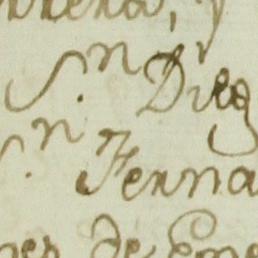 rrera, y
S.n Dieg
S.n Ferna
nes de Ene